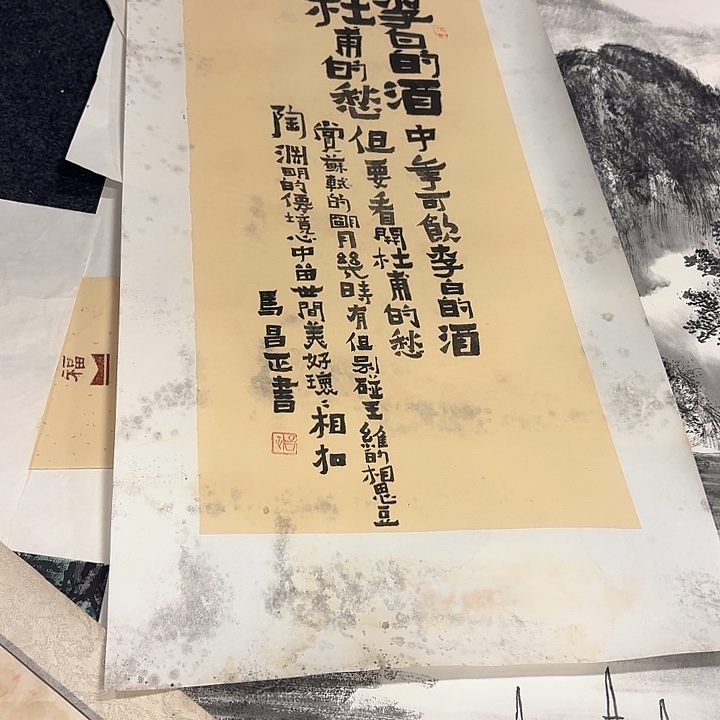 李白的酒
杜甫的愁
中年可飲李白的酒
但要看開杜甫的愁
賞蘇軾的朙月幾時有但别碰王維的相思豆
陶淵明的僊境心中留世間美好環〻相扣
馬昌正書
福